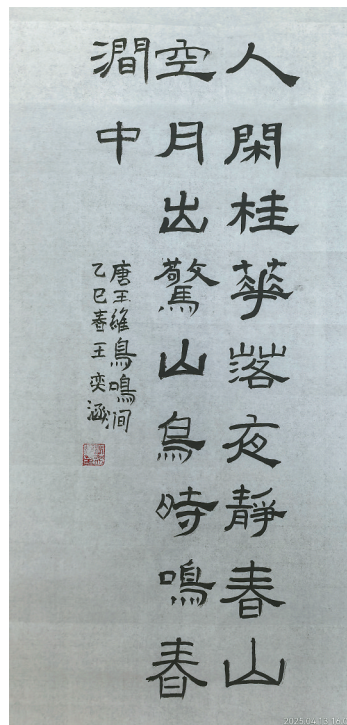 人閑桂華落夜靜春山
空月出驚山鳥時鳴春
澗中
唐王維鳥鳴涧
乙巳春王奕涵
2025.04.13 16:0